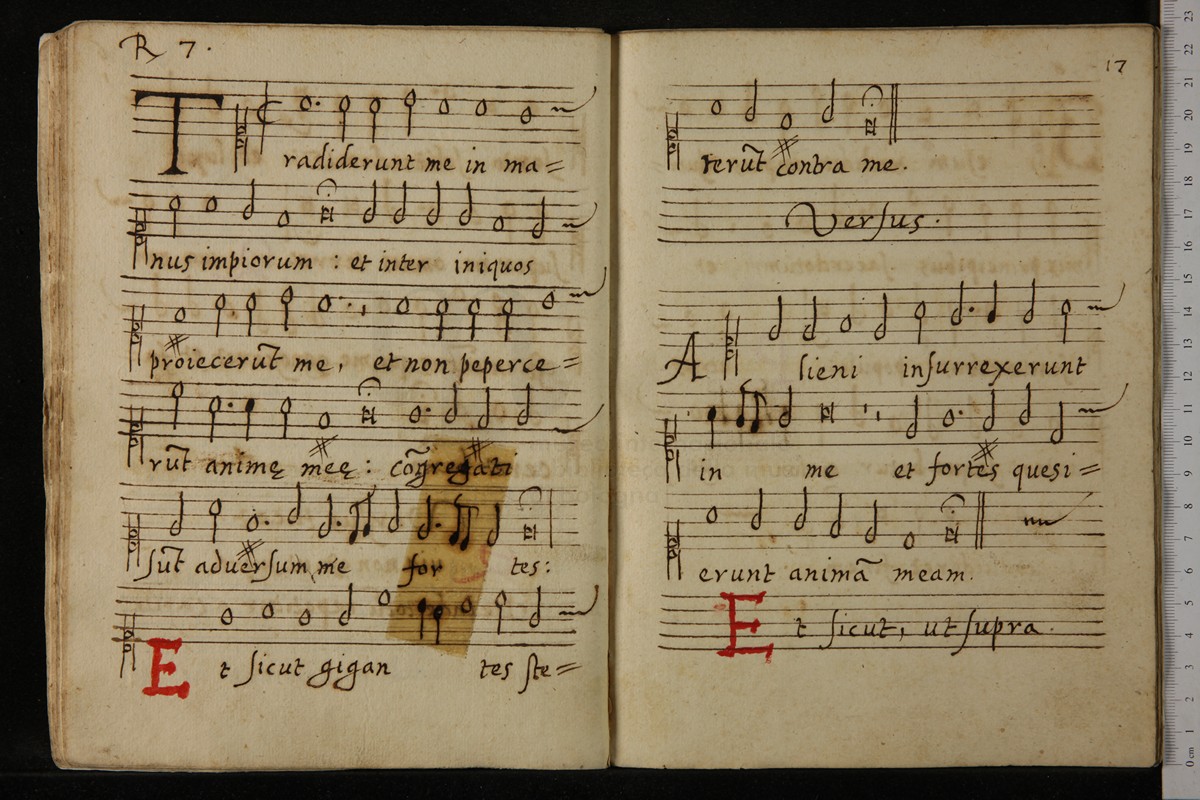 R 7.
Tradiderunt me in ma=
nus impiorum : et inter iniquos
proiecerut̃ me, et non peperce=
rut̃ animę meę : cõgregati
ſut̃ aduerſum me for tes:
Et ſicut gigan tes ſte=
17
terut̃ contra me.
Verſus.
Alieni inſurrexerunt
in me et fortes quesi=
erunt animã meam.
Et ſicut, ut ſupra.
23
22
21
20
19
18
17
16
15
14
13
12
11
10
9
8
7
6
5
4
3
2
1
0 cm